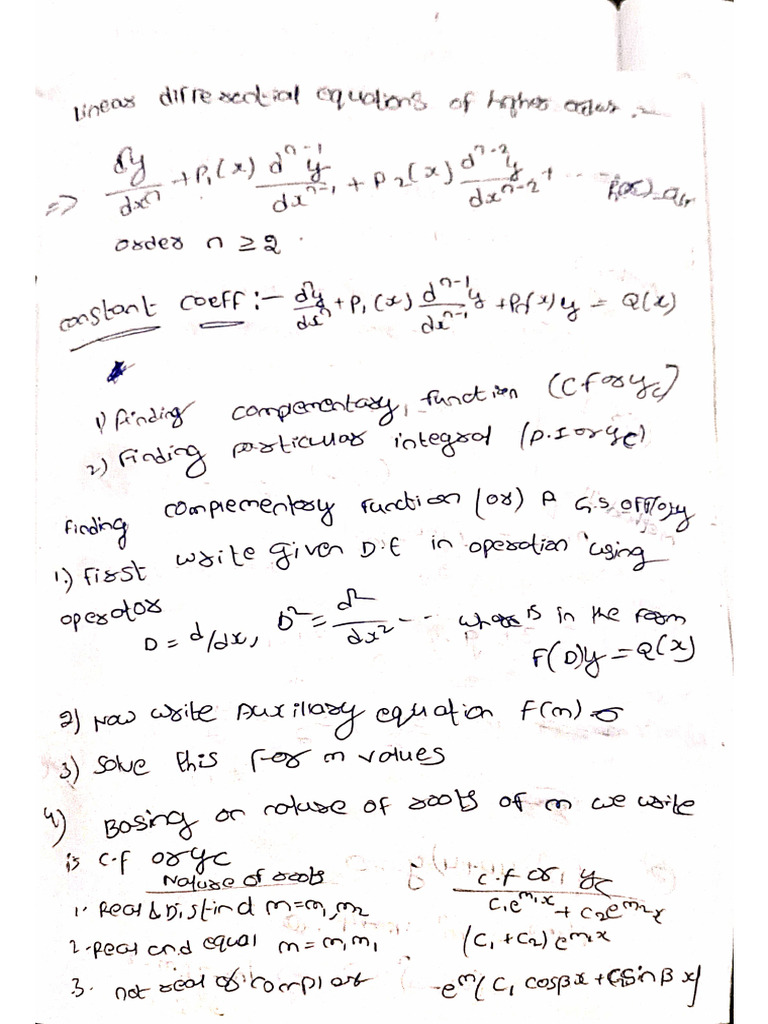 Linear diffresential equations of higher order :-
=> dⁿy/dxⁿ + P₁(x) dⁿ⁻¹y/dxⁿ⁻¹ + P₂(x) dⁿ⁻²y/dxⁿ⁻² + ...
order n ≥ 2.
constant coeff :- dⁿy/dxⁿ + P₁(x) dⁿ⁻¹y/dxⁿ⁻¹ + P(x)y = Q(x)
1) finding complementary function (C.F or yc)
2) Finding particular integral (P.I or yc)
finding complementary function (or) A G.S of
1.) First write given D.E in operation using
operator
D = d/dx, D² = d²/dx² --- where is in the form
F(D)y = Q(x)
2) Now write Auxillary equation F(m) = 0
3) Solve this for m values
4) Basing on nature of roots of m we write
is C.F or yc
Nature of roots C.F or yc
1. Real & Distinct m = m₁, m₂ C₁e^m₁x + C₂e^m₂x
2. Real and equal m = m₁ m₁ (C₁ + C₂) e^m₁x
3. not real or complex e^m (C₁ cosβx + C₂ sinβx)